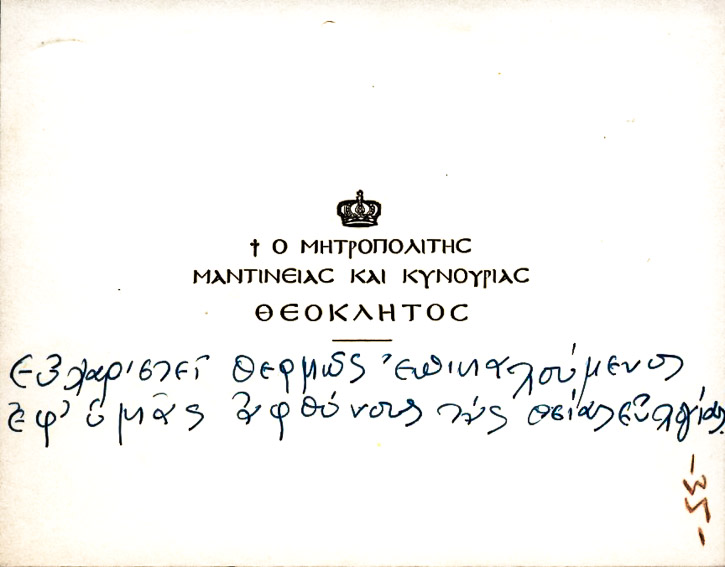 † Ο ΜΗΤΡΟΠΟΛΙΤΗΣ
ΜΑΝΤΙΝΕΙΑΣ ΚΑΙ ΚΥΝΟΥΡΙΑΣ
ΘΕΟΚΛΗΤΟΣ
Εὐχαριστεῖ θερμῶς ἐπικαλούμενος
ἐφ' ὑμᾶς ἀφθόνους τὰς θείας εὐλογίας